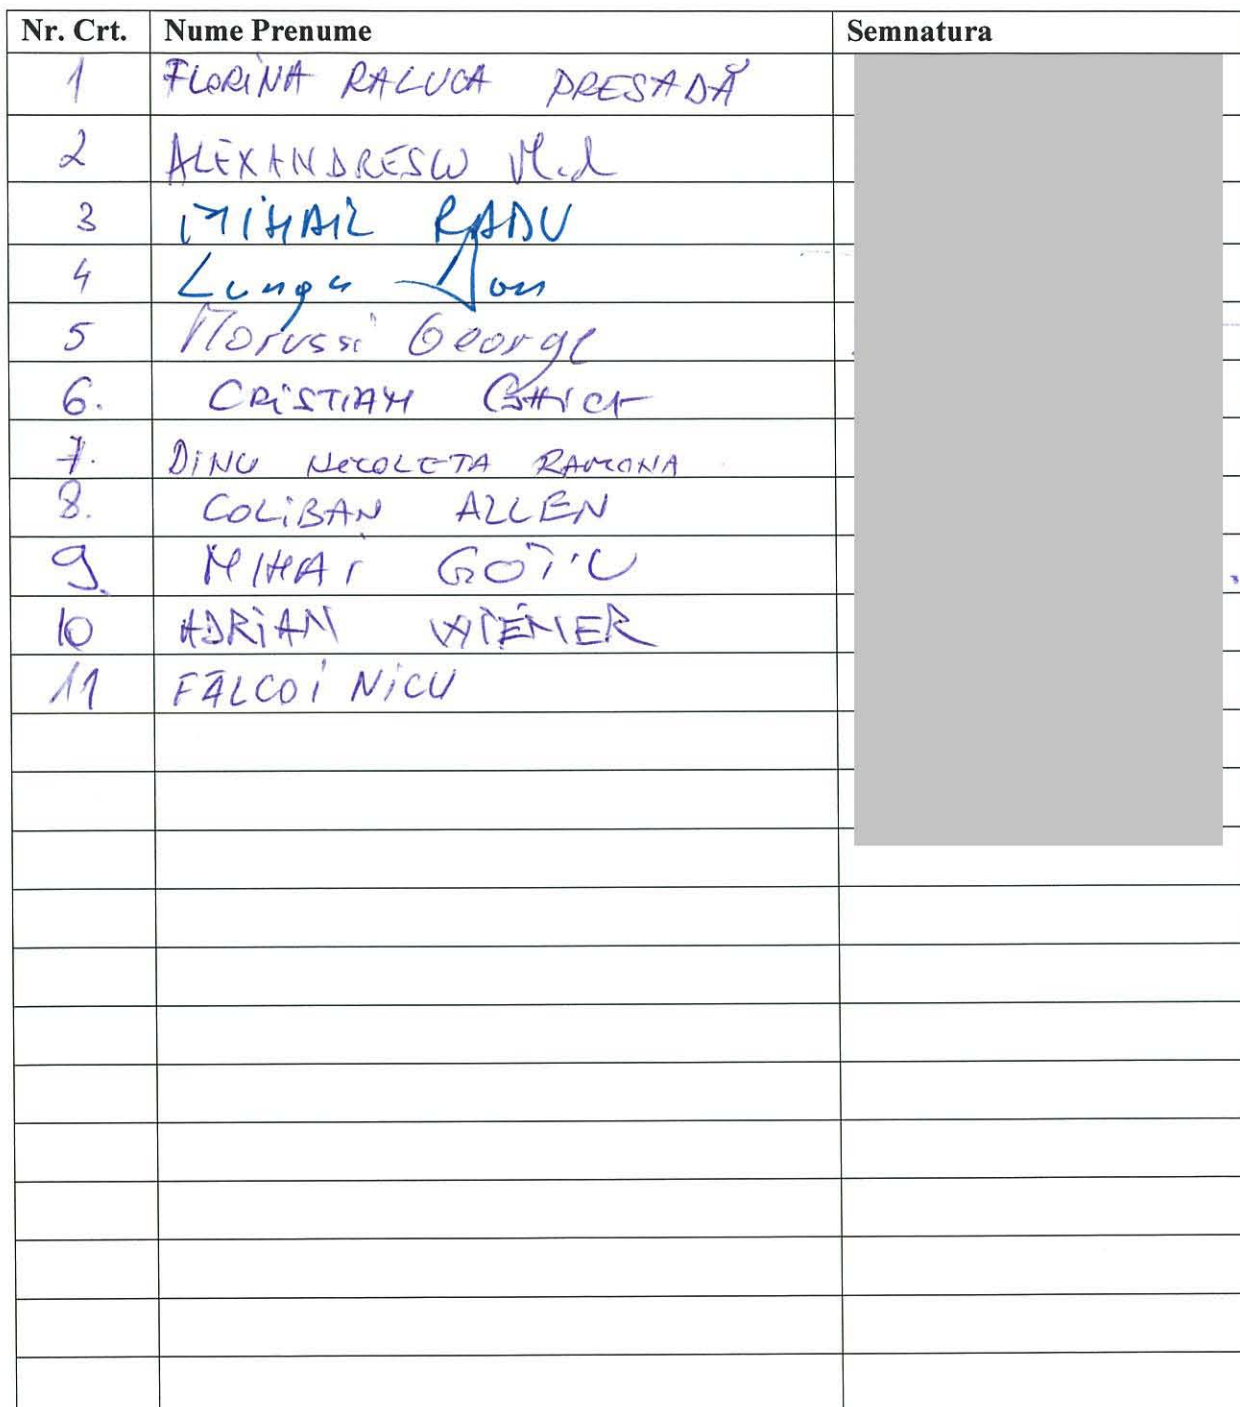 Nr. Crt. Nume Prenume Semnatura
1 FLORINA RALUCA PRESADĂ
2 ALEXANDRESCU Vlad
3 MIHAIL RADU
4 Lungu Ion
5 Marussi George
6. CRISTIAN GHICA
7. DINU NICOLETA RAMONA
8. COLIBAN ALLEN
9. MIHAI GOȚIU
10 ADRIAN WIENER
11 FĂLCOI NICU